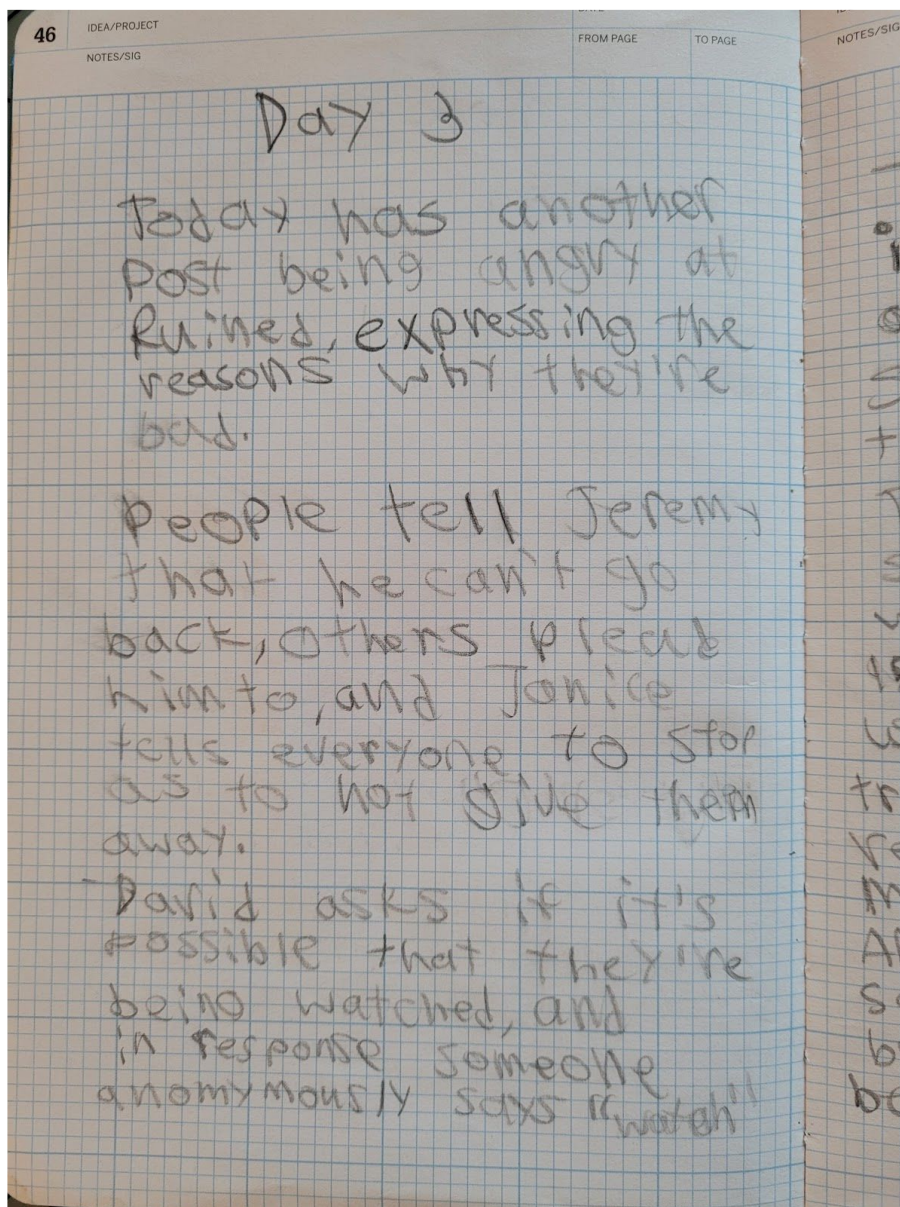 46
IDEA/PROJECT
NOTES/SIG
FROM PAGE
TO PAGE
NOTES/SIG
Day 3
Today has another
Post being angry at
Ruined, expressing the
reasons why they're
bad.
People tell Jeremy
that he can't go
back, others plead
him to, and Janice
tells everyone to stop
as to not give them
away.
David asks if it's
possible that they're
being watched, and
in response someone
anomymously says "watch"